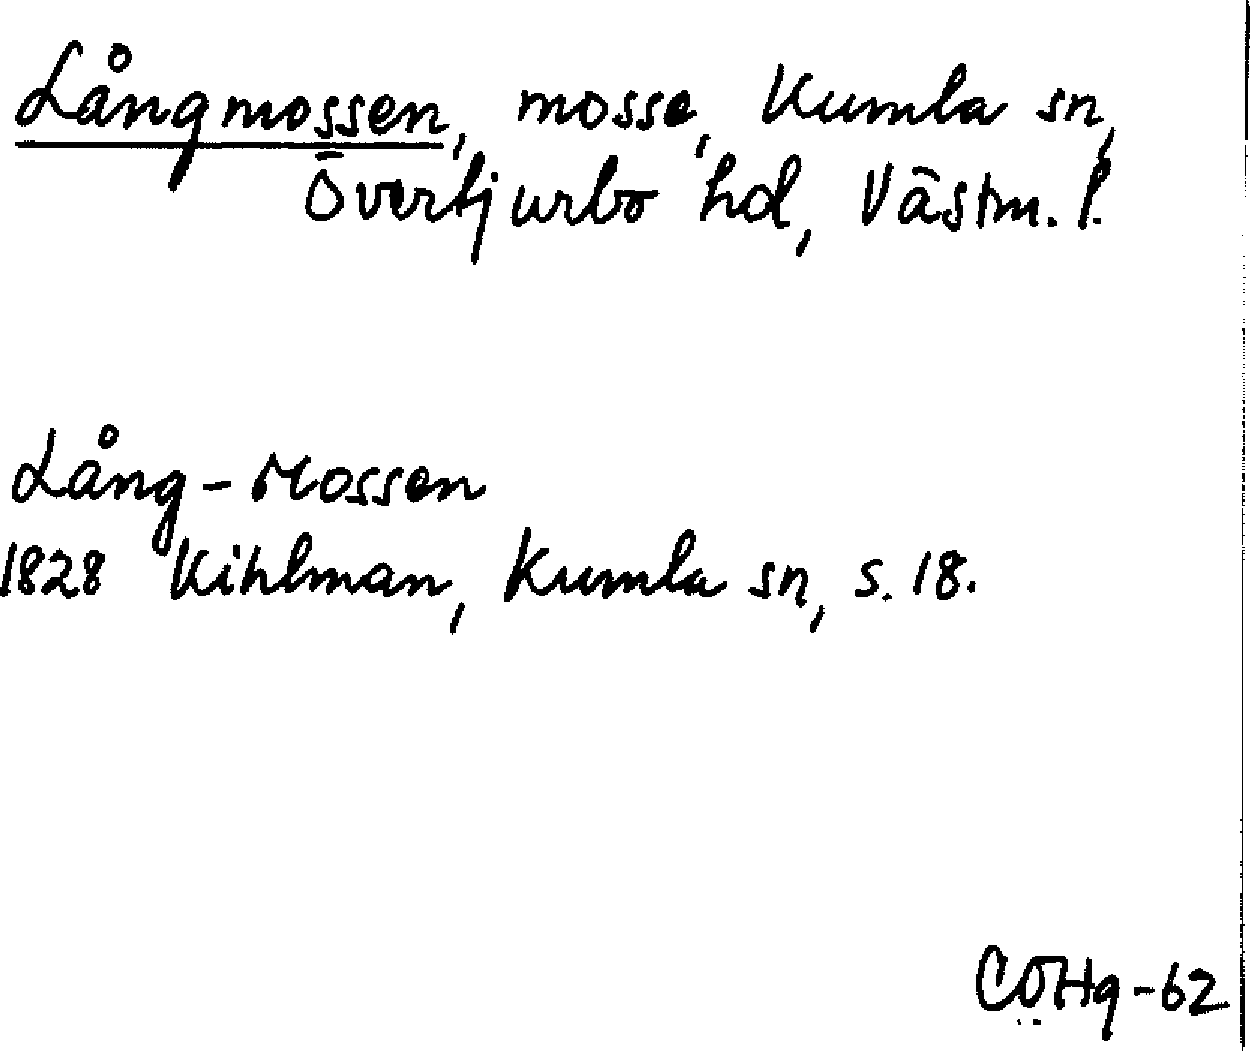 Långmossen, mosse, Kumla sn,
Övertjurbo hd, Västm. l.
Lång-Mossen
1828 Kihlman, Kumla sn, s. 18.
COHg-62